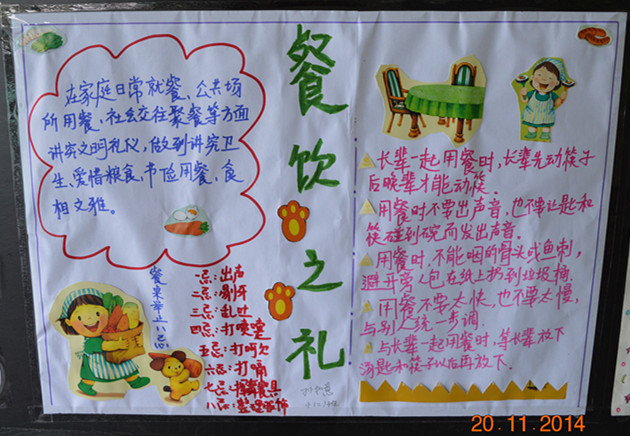 餐饮之礼
在家庭日常就餐、公共场
所用餐、社会交往聚餐等方面
讲究文明礼仪，做到讲究卫
生、爱惜粮食、节俭用餐、食
相文雅。
餐桌举止八忌
一忌：出声
二忌：剔牙
三忌：乱吐
四忌：打喷嚏
五忌：打呵欠
六忌：打嗝
七忌：餐具
八忌：整理衣饰
长辈一起用餐时，长辈先动筷子
后晚辈才能动筷。
用餐时不要出声音，也不要让匙和
筷碰到碗而发出声音。
用餐时，不能咽的骨头或鱼刺，
避开旁人包在纸上扔到垃圾桶。
用餐不要太快，也不要太慢，
与别人统一步调。
与长辈一起用餐时，等长辈放下
汤匙和筷子以后再放下。
20.11.2014